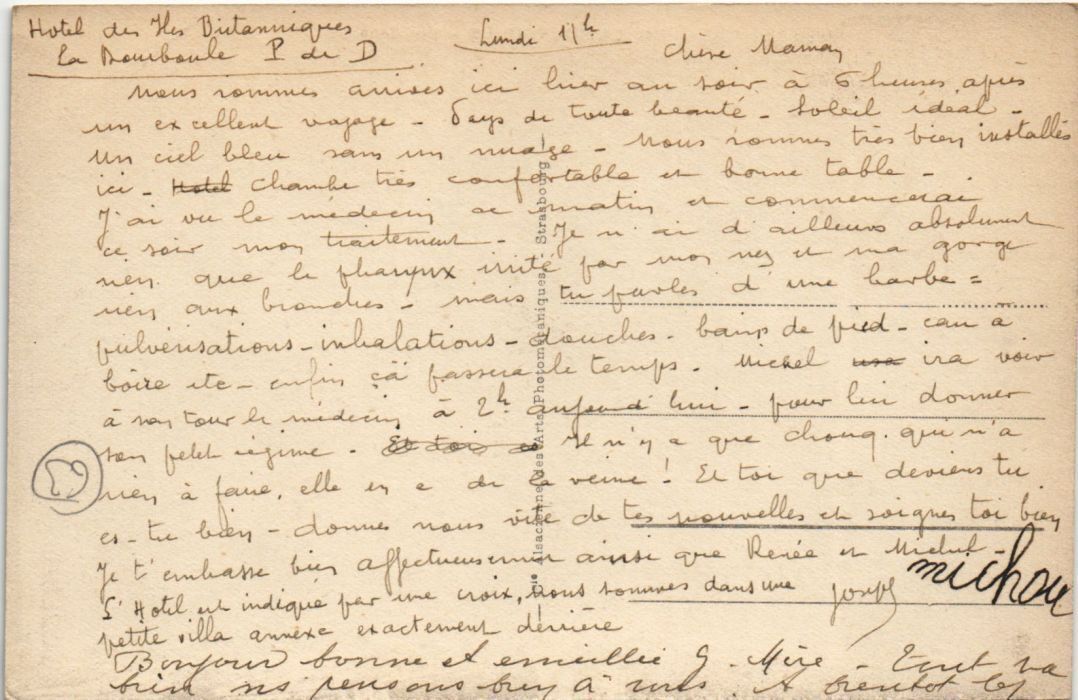 Hotel des Iles Britanniques
La Bourboule P de D
Lundi 11h
Chère Maman
Nous sommes arrivés ici hier au soir à 6 heures après
un excellent voyage - Pays de toute beauté - Soleil idéal -
Un ciel bleu sans un nuage - Nous sommes très bien installés
ici - Hotel Chambre très confortable et bonne table -
J'ai vu le médecin ce matin et commencerai
ce soir mon traitement - Je n'ai d'ailleurs absolument
rien que le pharynx irrité par mon nez et ma gorge
rien aux bronches - mais tu parles d'une barbe =
pulvérisations - inhalations - douches - bains de pied - eau à
boire etc - enfin ça passera le temps. Michel ira voir
à son tour le médecin à 2h aujourd'hui - pour lui donner
son petit régime - Et toi Il n'y a que qui n'a
rien à faire, elle en a de la veine ! Et toi que deviens tu
es-tu bien - donnes nous vite de tes nouvelles et soignes toi bien
Je t'embrasse bien affectueusement ainsi que Renée et Michel -
Joseph
michou
L'Hotel est indiqué par une croix, nous sommes dans une
petite villa annexe exactement derrière
Bonjour bonne et G. Mère - Tout va
bien ns pensons bien à vous. A bientot les
Alsacienne des Arts Photomécaniques - Strasbourg